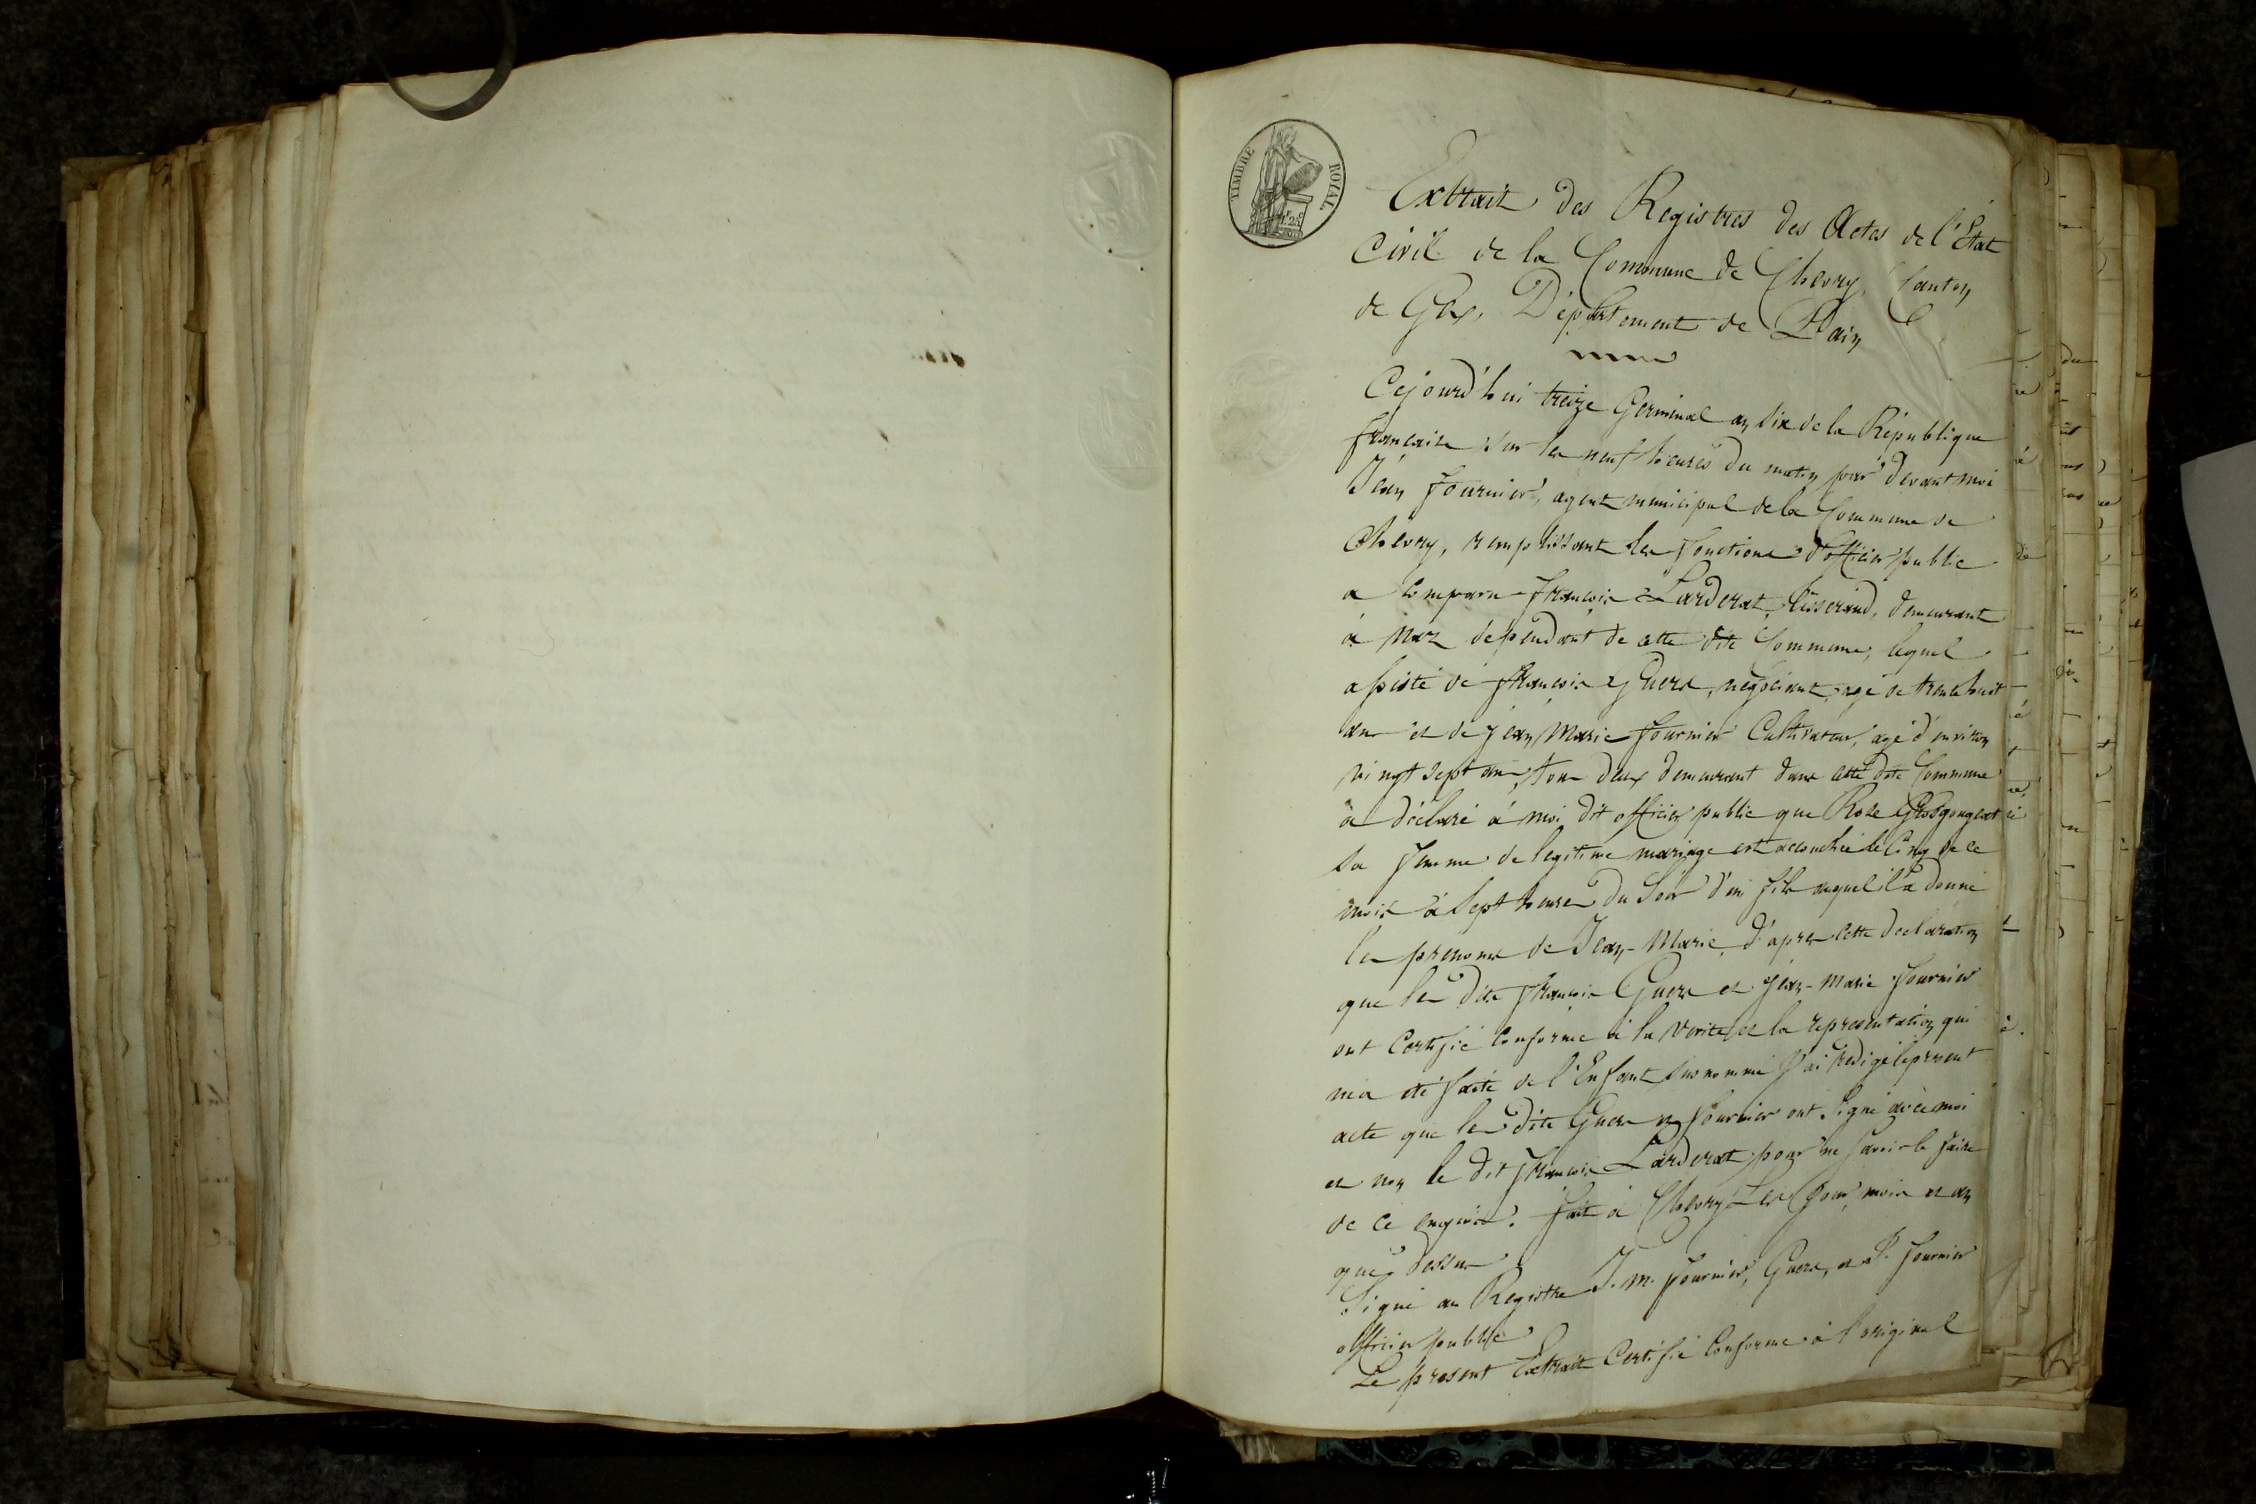 TIMBRE ROYAL
25c
Extrait des Registres des Actes de l'État
Civil de la Commune de Chevry, Canton
de Gex, Département de L'ain
Cejourd'hui treize Germinal an six de la République
française sur les neuf heures du matin par devant moi
Jean Fournier, agent municipal de la Commune de
Chevry, remplissant les fonctions d'officier public
a comparu françois Larderat, tisserand, demeurant
à Naz dependant de cette dite Commune, lequel
assisté de françois Guera, négociant, agé de trente huit
ans et de jean Marie fournier Cultivateur, agé d'environ
vingt sept ans, tous deux demeurant dans cette dite Commune
a déclaré à moi dit officier public que Rose Grosgougeat
sa femme de legitime mariage est accouchée le Cinq de ce
mois à Sept heures du Soir d'un fils auquel il a donné
les prenoms de Jean-Marie, d'apres cette declaration
que les dits françois Guera et jean-marie fournier
ont Certifié Conforme à la verité et la representation qui
m'a été faite de l'Enfant susnommé j'ai redigé le present
acte que les dits Guera et fournier ont Signé avec moi
et non le dit françois Larderat pour ne savoir le faire
de ce enquis. fait à Chevry Les jour, mois et an
que dessus
Signé au Registre J. M. fournier, Guera, et J. fournier
officier public
Le present Extrait Certifié Conforme à l'original